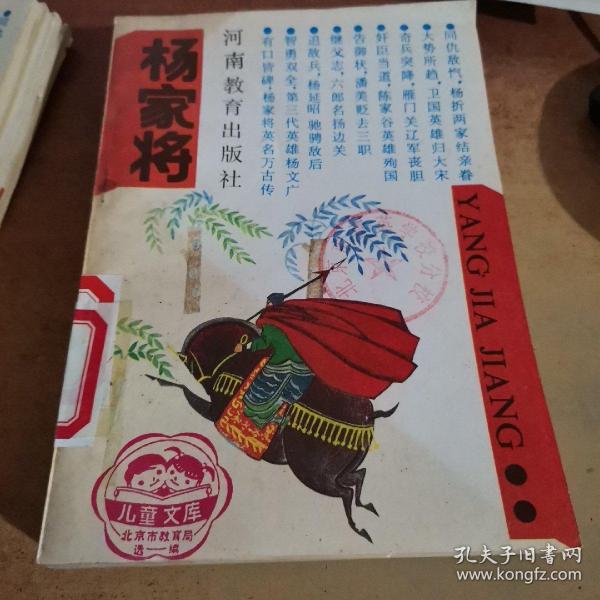 杨家将
河南教育出版社
●同仇敌忾，杨折两家结亲眷
●大势所趋，卫国英雄归大宋
●奇兵突降，雁门关辽军丧胆
●奸臣当道，陈家谷英雄殉国
●告御状，潘美贬去三职
●继父志，六郎名扬边关
●退敌兵，杨延昭驰骋敌后
●智勇双全，第三代英雄杨文广
●有口皆碑，杨家将英名万古传
YANG JIA JIANG
儿童文库
北京市教育局
选一编
孔夫子旧书网
www.kongfz.com